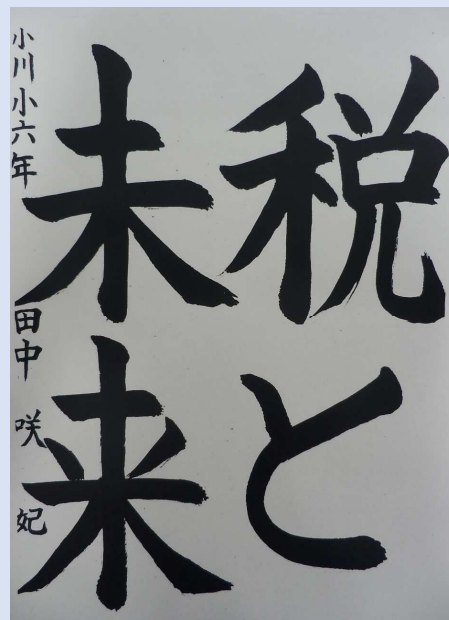 税と
未来
小川小六年 田中咲妃